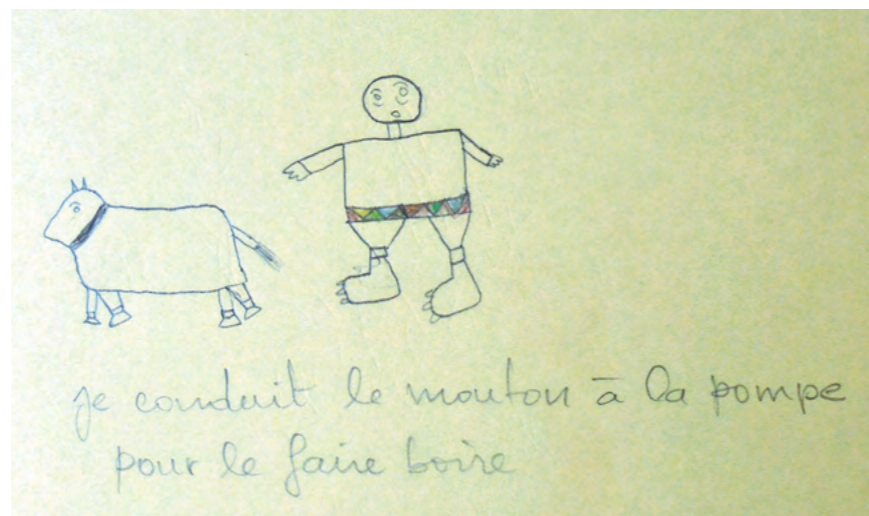 je conduit le mouton à la pompe
pour le faire boire